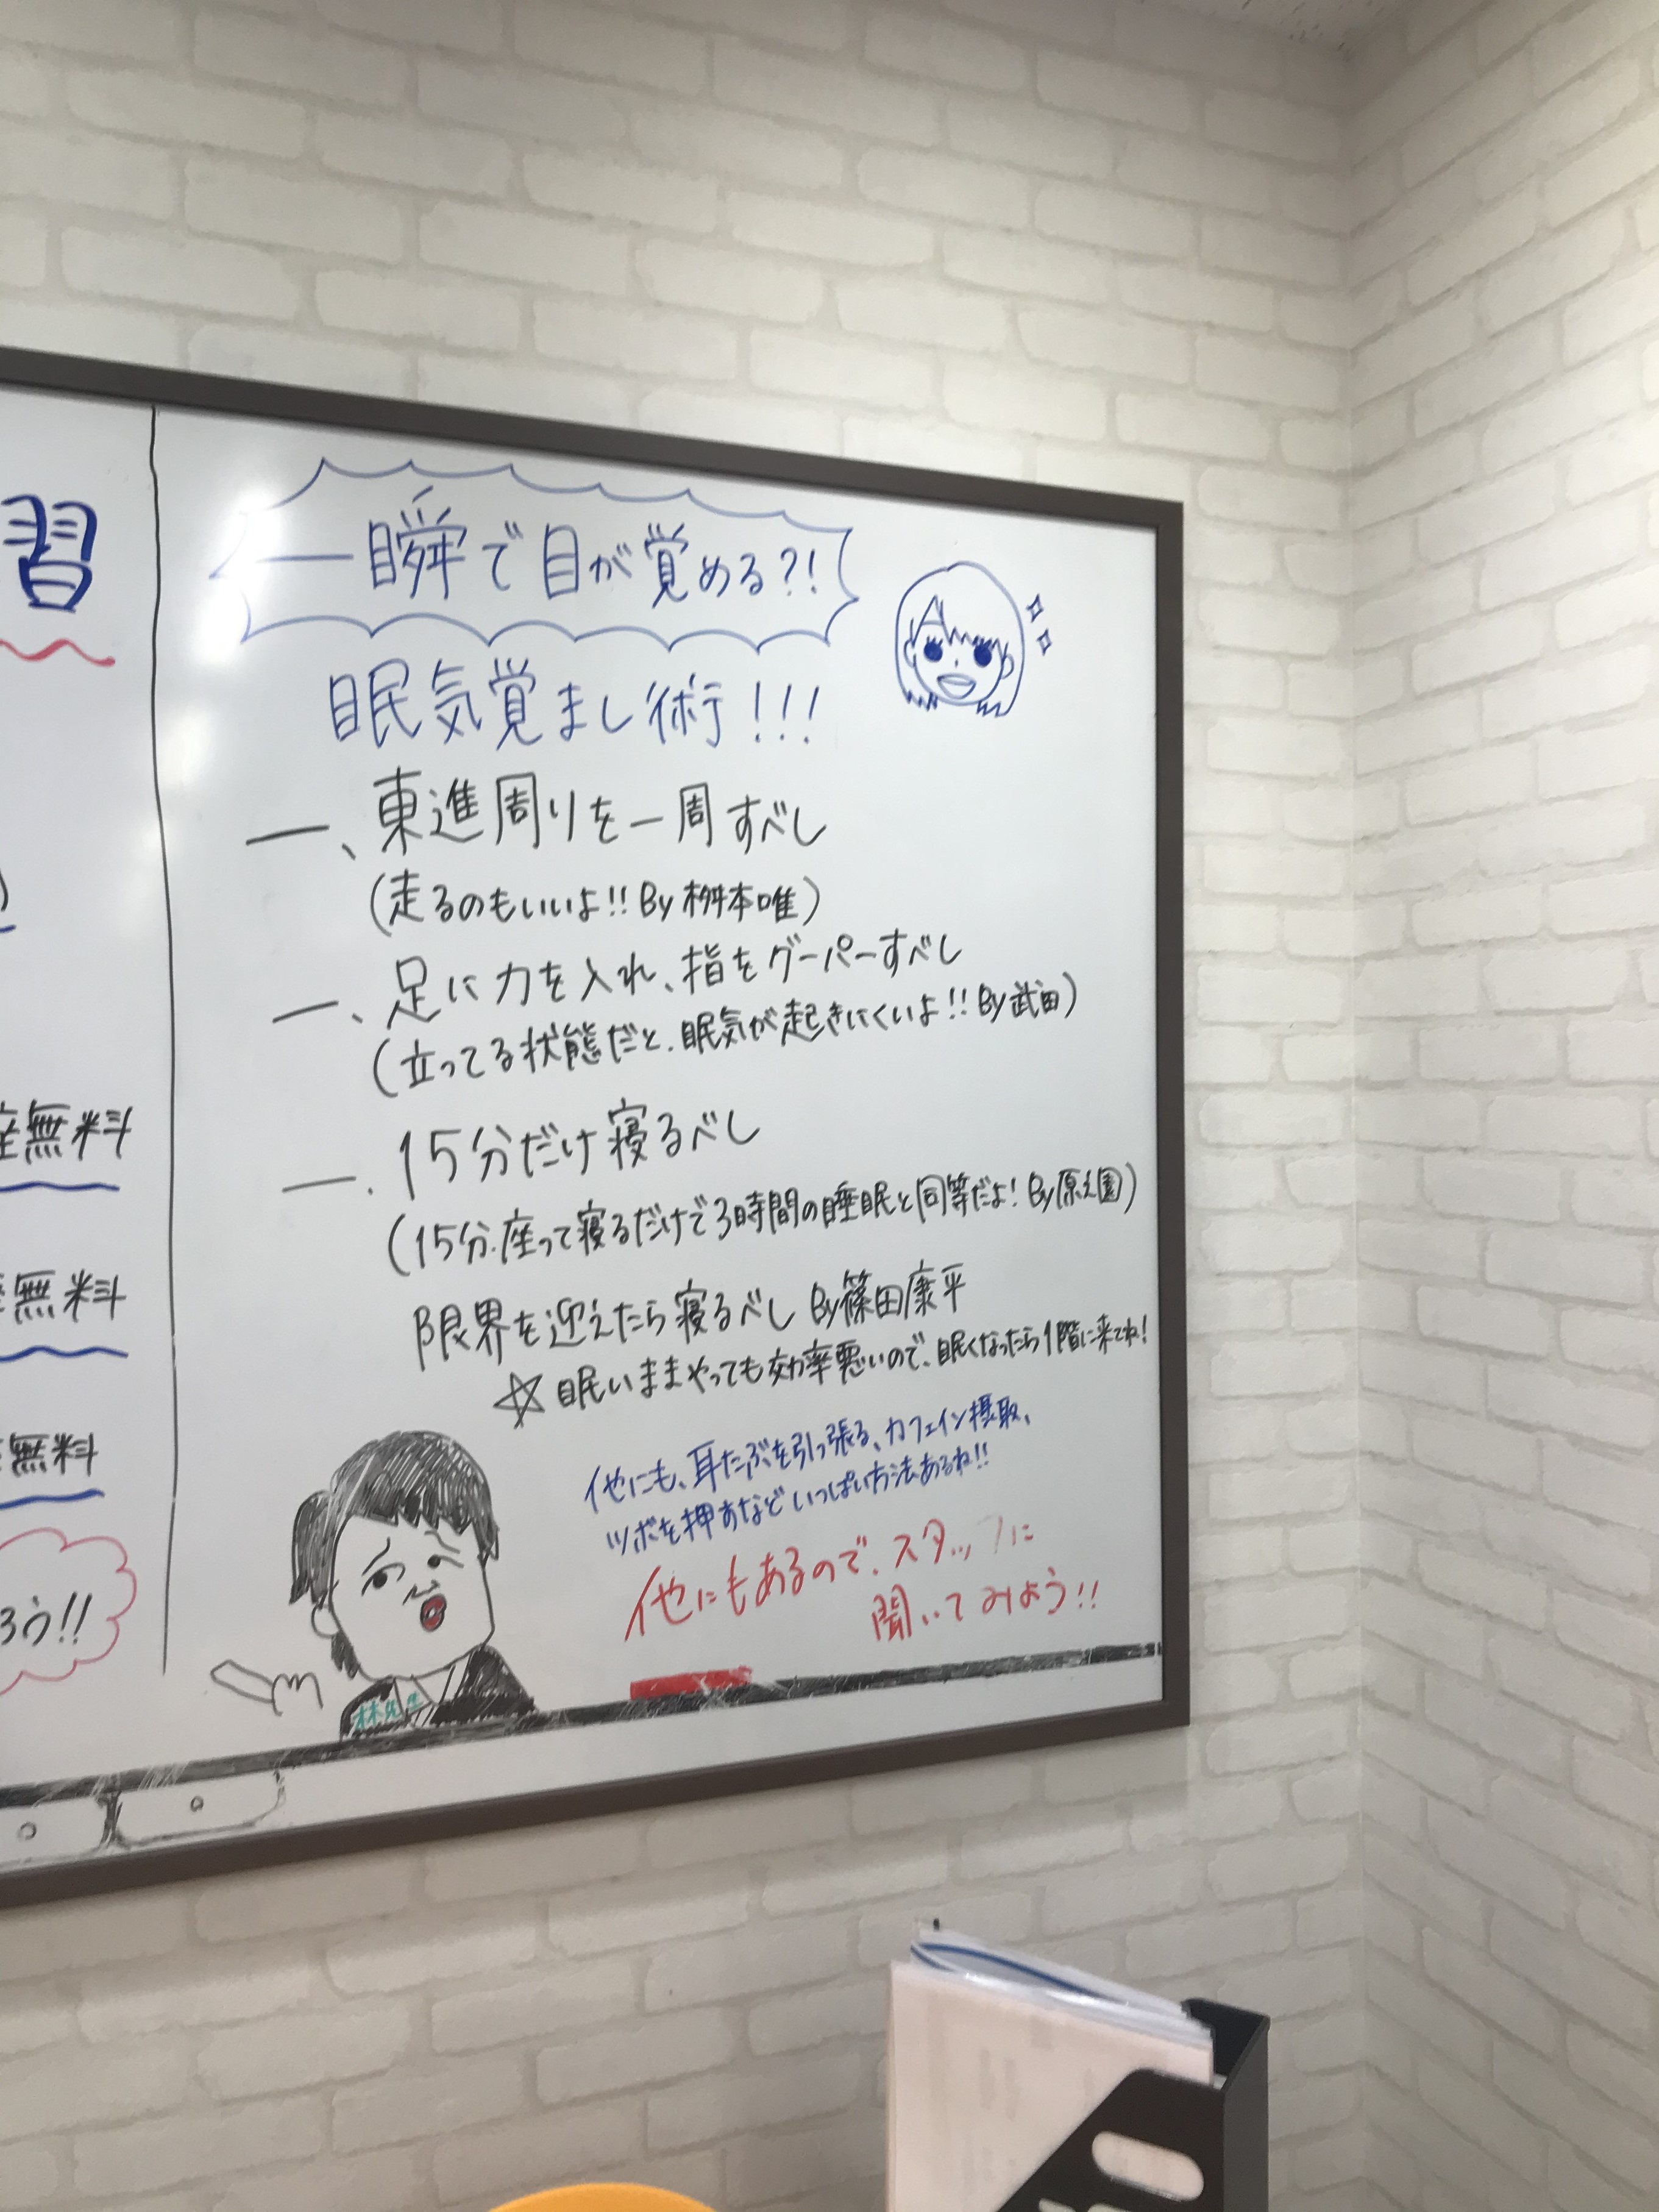 習
無料
無料
無料
ろう!!
一瞬で目が覚める?!
眠気覚まし術!!!
一、東進周りを一周すべし
(走るのもいいよ!! By 桝本唯)
一、足に力を入れ、指をグーパーすべし
(立ってる状態だと、眠気が起きにくいよ!! By 武田)
一、15分だけ寝るべし
(15分、座って寝るだけで3時間の睡眠と同等だよ! By 原之園)
限界を迎えたら寝るべし By 篠田康平
☆眠いままやっても効率悪いので、眠くなったら1階に来てね!
他にも、耳たぶを引っ張る、カフェイン摂取、
ツボを押すなどいっぱい方法あるね!!
他にもあるので、スタッフに
聞いてみよう!!
林先生